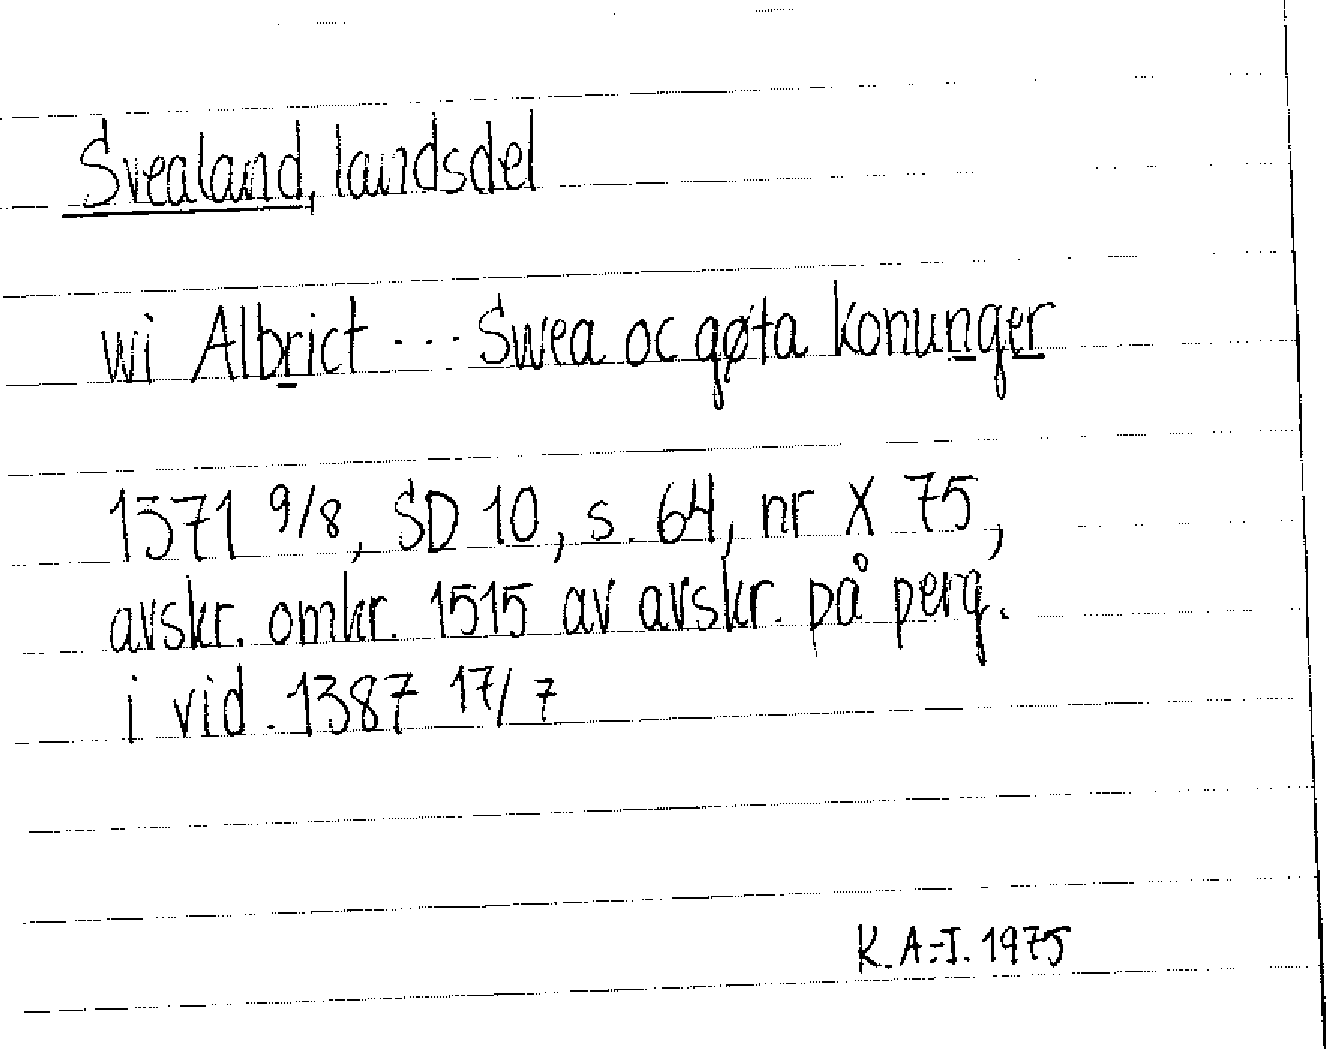 Svealand, landsdel
wi Albrict ... Swea oc gøta konunger
1371 9/8, SD 10, s. 64, nr X 75,
avskr. omkr. 1515 av avskr. på perg.
i vid. 1387 17/7
K. A-I. 1975